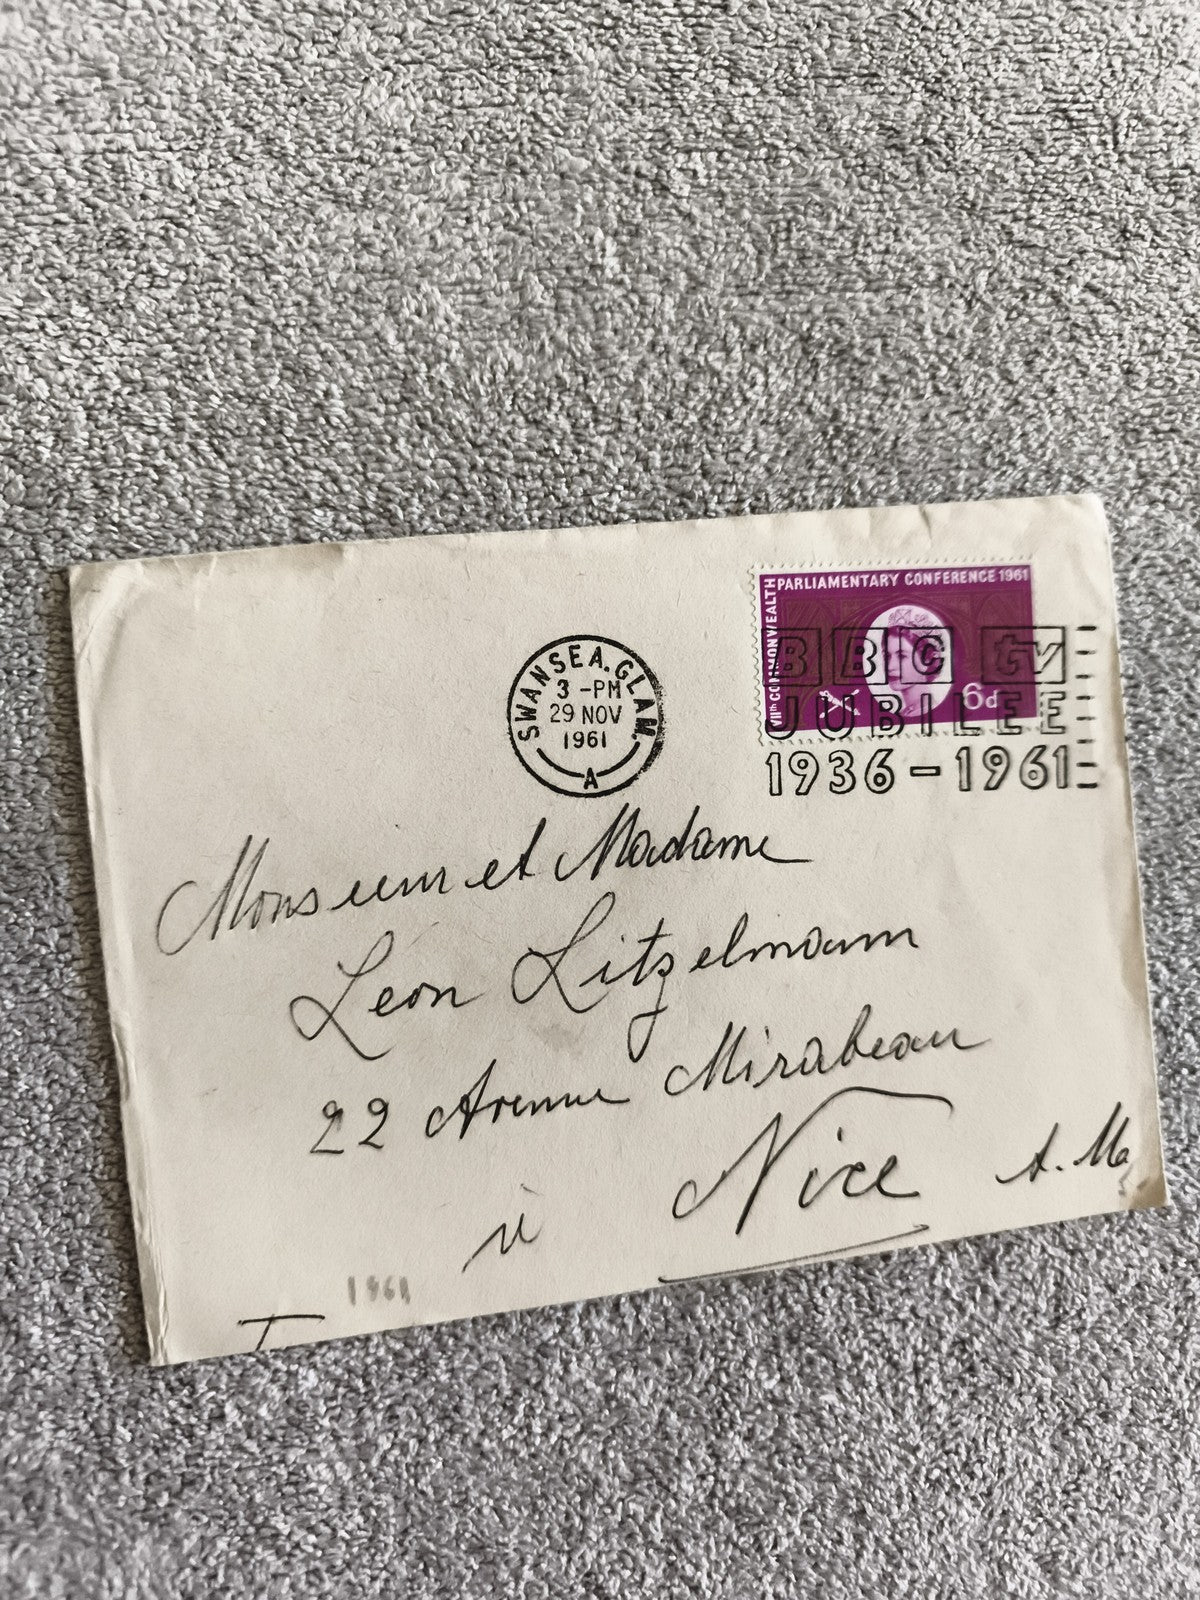 VIIth COMMONWEALTH
PARLIAMENTARY CONFERENCE 1961
6d
BBC tv
JUBILEE
1936-1961
SWANSEA. GLAM.
3-PM
29 NOV
1961
A
Monsieur et Madame
Leon Litzelmann
22 Avenue Mirabeau
à Nice A. M.
1961